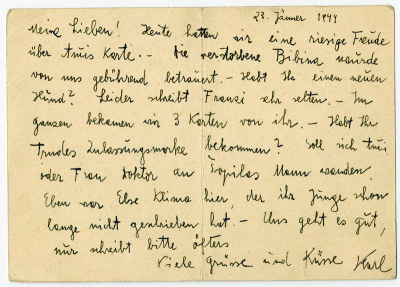 23. Jänner 1944
Meine Lieben! Heute hatten wir eine riesige Freude
über Tuis Karte. – Die verstorbene Bibina wurde
von uns gebührend betrauert. – Habt Ihr einen neuen
Hund? Leider schreibt Franzi sehr selten. – Im
ganzen bekamen wir 3 Karten von ihr. – Habt Ihr
Trudes Zulassungsmarke bekommen? Soll sich Tui
oder Frau Doktor an Topilas Mann wenden.
Eben war Else Klima hier, der ihr Junge schon
lange nicht geschrieben hat. – Uns geht es gut,
nur schreibt bitte öfters
Viele Grüsse und Küsse Karl